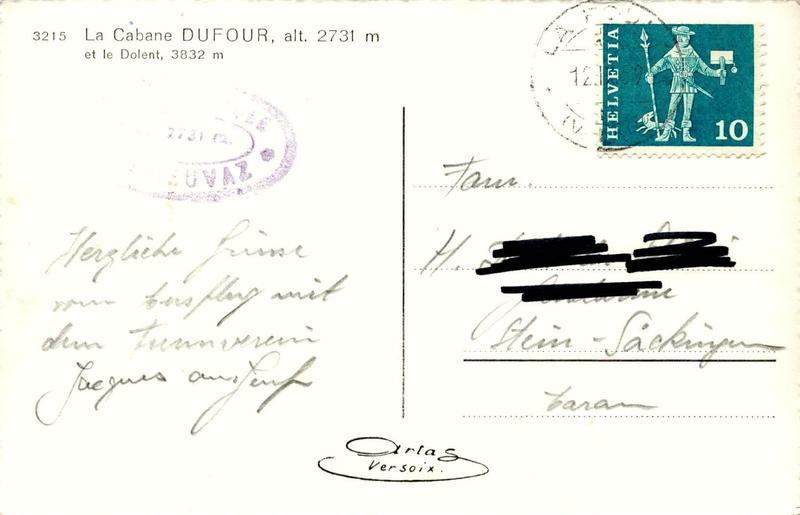 3215 La Cabane DUFOUR, alt. 2731 m
et le Dolent, 3832 m
2731 m.
HELVETIA
10
Herzliche Grüsse
vom Ausflug mit
dem Turnverein
Jacques aus Genf
Fam.
H.
Stein-Säckingen
Aarau
Artas
Versoix.